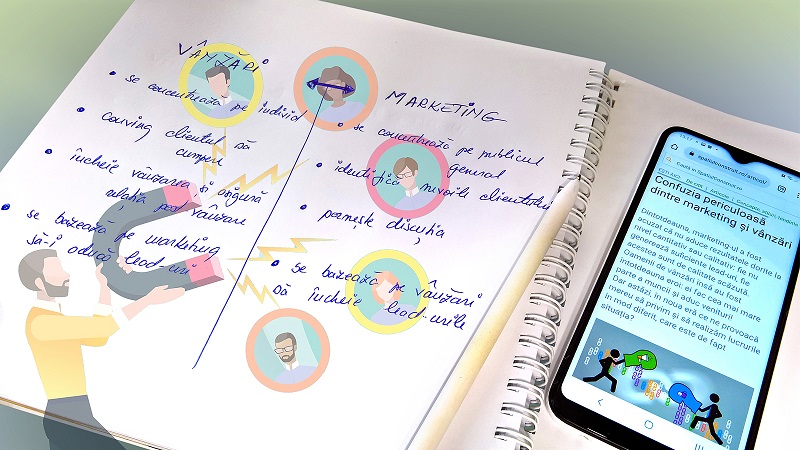 VÂNZĂRI
• se concentrează pe individ
• conving clientul să
cumperi
• încheie vânzarea și asigură
relația post vânzare
• se bazează pe marketing
să-i aducă lead-uri
MARKETING
• se concentrează pe publicul
general
• identifică nevoile clientului
• pornește discuția
• se bazează pe vânzări
să încheie lead-urile
Confuzia periculoasă
dintre marketing și vânzări
Dintotdeauna, marketing-ul a fost
acuzat că nu aduce rezultatele dorite la
nivel cantitativ sau calitativ: fie nu
generează suficiente lead-uri, fie
acestea sunt de calitate scăzută.
Oamenii de vânzări însă au fost
întotdeauna eroi: ei fac cea mai mare
parte a muncii și aduc venituri!
Dar astăzi, în noua eră ce ne provoacă
mereu să privim și să realizăm lucrurile
în mod diferit, care este de fapt
situația?